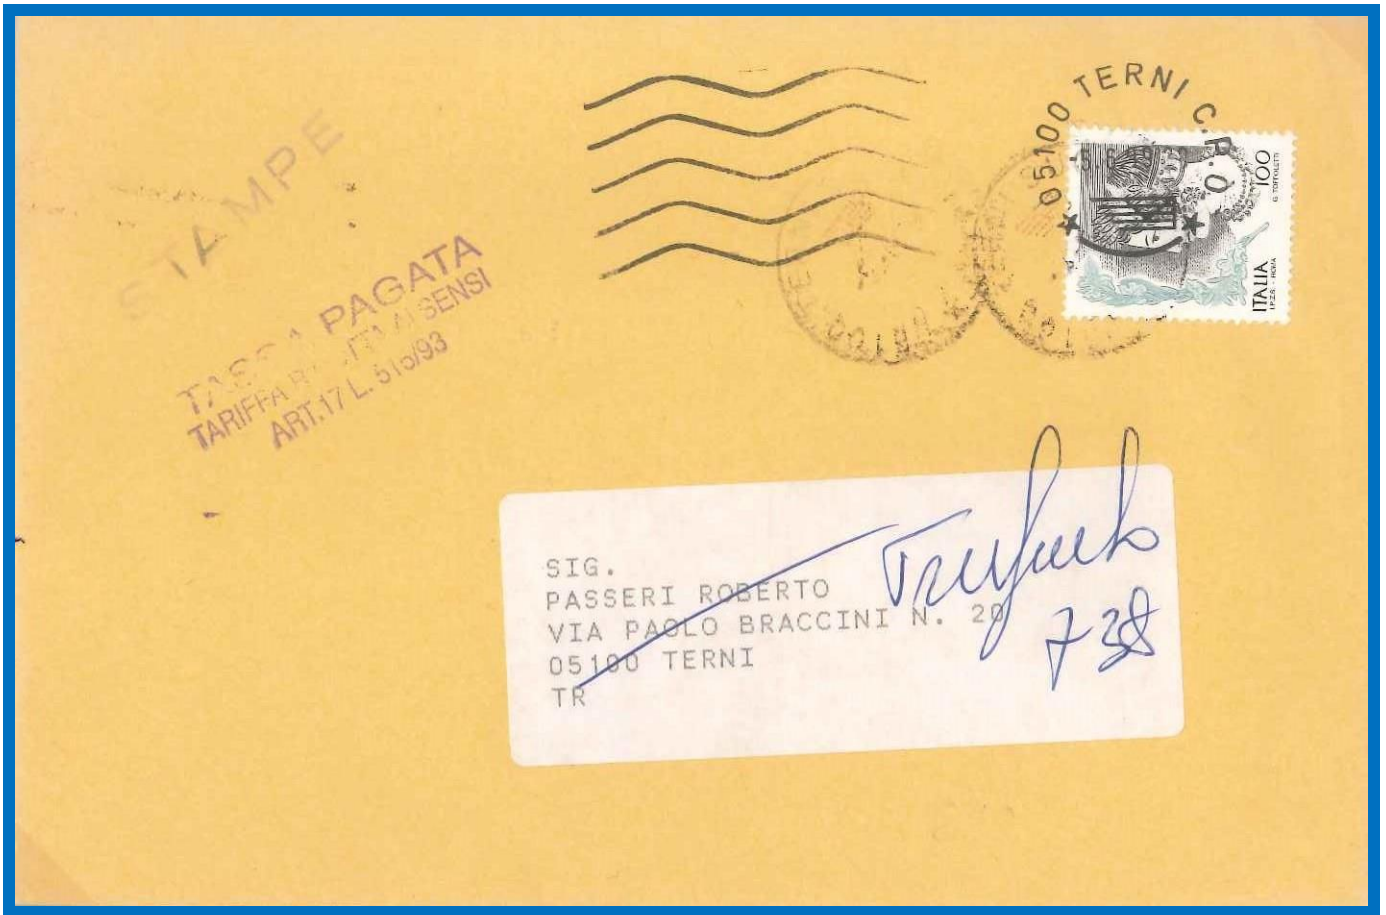 STAMPE
TASSA PAGATA
TARIFFA AI SENSI
ART.17 L. 515/93
05100 TERNI C.P.O.
100
G. TOFFOLETTI
ITALIA
I.P.Z.S. - ROMA
SIG.
PASSERI ROBERTO
VIA PAOLO BRACCINI N. 20
05100 TERNI
TR
738